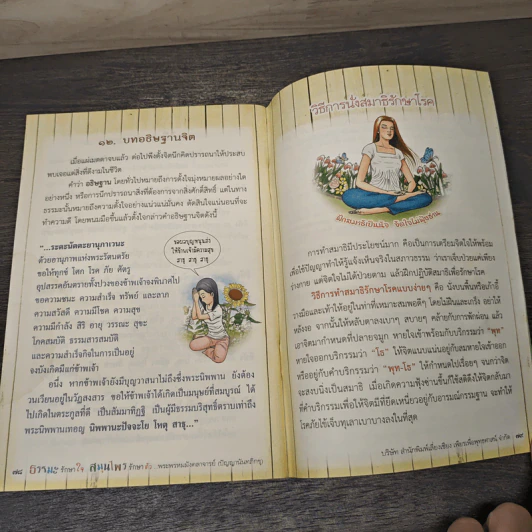 ๑๒. บทอธิษฐานจิต
เมื่อแผ่เมตตาจบแล้ว ต่อไปพึงตั้งจิตนึกคิดปรารถนาให้ประสบ
พบเจอแต่สิ่งที่ดีงามในชีวิต
คำว่า อธิษฐาน โดยทั่วไปหมายถึงการตั้งใจมุ่งหมายผลอย่างใด
อย่างหนึ่ง หรือการนึกปรารถนาสิ่งที่ต้องการจากสิ่งศักดิ์สิทธิ์ แต่ในทาง
ธรรมะนั้นหมายถึงความตั้งใจอย่างแน่วแน่มั่นคง ตัดสินใจแน่นอนที่จะ
ทำความดี โดยพนมมือขึ้นแล้วตั้งใจกล่าวคำอธิษฐานจิตดังนี้
"...ระตะนัตตะยานุภาเวนะ
ด้วยอานุภาพแห่งพระรัตนตรัย
ขอให้ทุกข์ โศก โรค ภัย ศัตรู
อุปสรรคอันตรายทั้งปวงของข้าพเจ้าจงพินาศไป
ขอความชนะ ความสำเร็จ ทรัพย์ และลาภ
ความสวัสดี ความมีโชค ความสุข
ความมีกำลัง สิริ อายุ วรรณะ สุขะ
โภคสมบัติ ธรรมสารสมบัติ
และความสำเร็จกิจในการเป็นอยู่
จงบังเกิดมีแก่ข้าพเจ้า
อนึ่ง หากข้าพเจ้ายังมีบุญวาสนาไม่ถึงซึ่งพระนิพพาน ยังต้อง
วนเวียนอยู่ในวัฏสงสาร ขอให้ข้าพเจ้าได้เกิดเป็นมนุษย์ที่สมบูรณ์ ได้
ไปเกิดในตระกูลที่ดี เป็นสัมมาทิฏฐิ เป็นผู้มีธรรมบริสุทธิ์ตราบเท่าถึง
พระนิพพานเทอญ นิพพานะปัจจะโย โหตุ สาธุ..."
ขออนุญาตหนูนะ
ให้ข้าพเจ้ามีความสุข
สาธุ สาธุ สาธุ
๗๘ ธรรมะรักษาใจ สมุนไพรรักษาตัว
วิธีการนั่งสมาธิรักษาโรค
การทำสมาธิมีประโยชน์มาก คือเป็นการเตรียมจิตใจให้พร้อม
เพื่อใช้ปัญญาทำให้รู้แจ้งเห็นจริงในสภาวธรรม ว่าเราเจ็บป่วยแค่เพียง
ร่างกาย แต่จิตใจไม่ได้ป่วยตาม แล้วฝึกปฏิบัติสมาธิเพื่อรักษาโรค
วิธีการทำสมาธิรักษาโรคแบบง่ายๆ คือ นั่งบนพื้นหรือเก้าอี้
วางมือและเท้าให้อยู่ในท่าที่เหมาะสมพอดีๆ โดยไม่ฝืนและเกร็ง อย่าให้
หลังงอ จากนั้นให้หลับตาลงเบาๆ สบายๆ คล้ายกับการพักผ่อน แล้ว
เอาจิตมากำหนดที่ปลายจมูก หายใจเข้าพร้อมกับบริกรรมว่า "พุท"
หายใจออกบริกรรมว่า "โธ" ให้จิตแนบแน่นอยู่กับลมหายใจเข้าออก
หรืออยู่กับคำบริกรรมว่า "พุท-โธ" ให้กำหนดไปเรื่อยๆ จนกว่าจิต
จะสงบนิ่งเป็นสมาธิ เมื่อเกิดความฟุ้งซ่านขึ้นก็ใช้สติดึงให้จิตกลับมา
ที่คำบริกรรมเพื่อให้จิตมีที่ยึดเหนี่ยวอยู่กับอารมณ์กรรมฐาน จะทำให้
โรคภัยไข้เจ็บทุเลาเบาบางลงในที่สุด
บริษัท สำนักพิมพ์เลี่ยงเชียง เพียรเพื่อพุทธศาสน์ จำกัด ๗๙